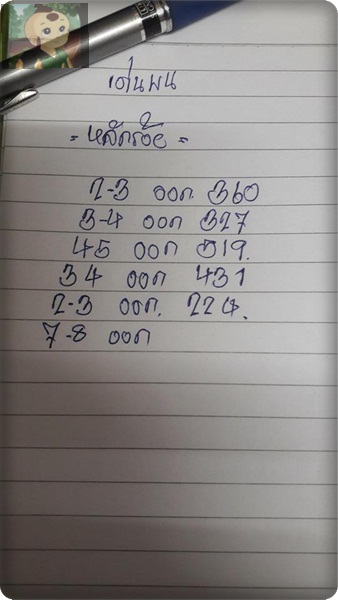 เด่นบน
= หลักร้อย =
2-3 ออก. 360
3-4 ออก 327
45 ออก 519.
34 ออก 431
2-3 ออก. 224.
7-8 ออก